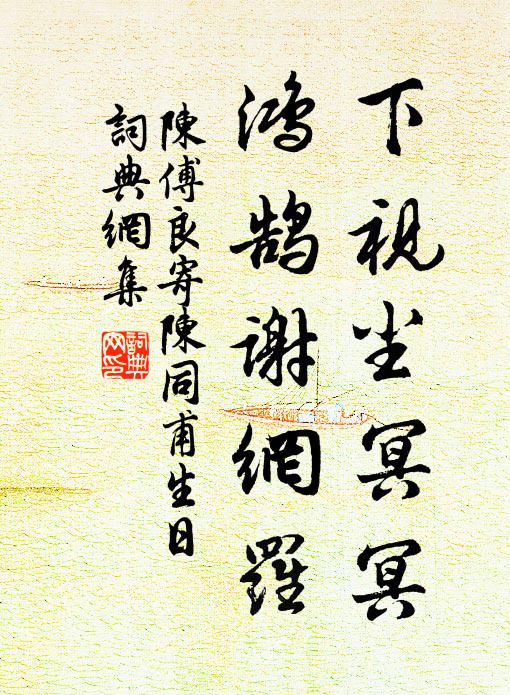 下視尘冥冥
鴻鵠謝網羅
陳傅良寄陳同甫生日
詞典網集
詞典網印